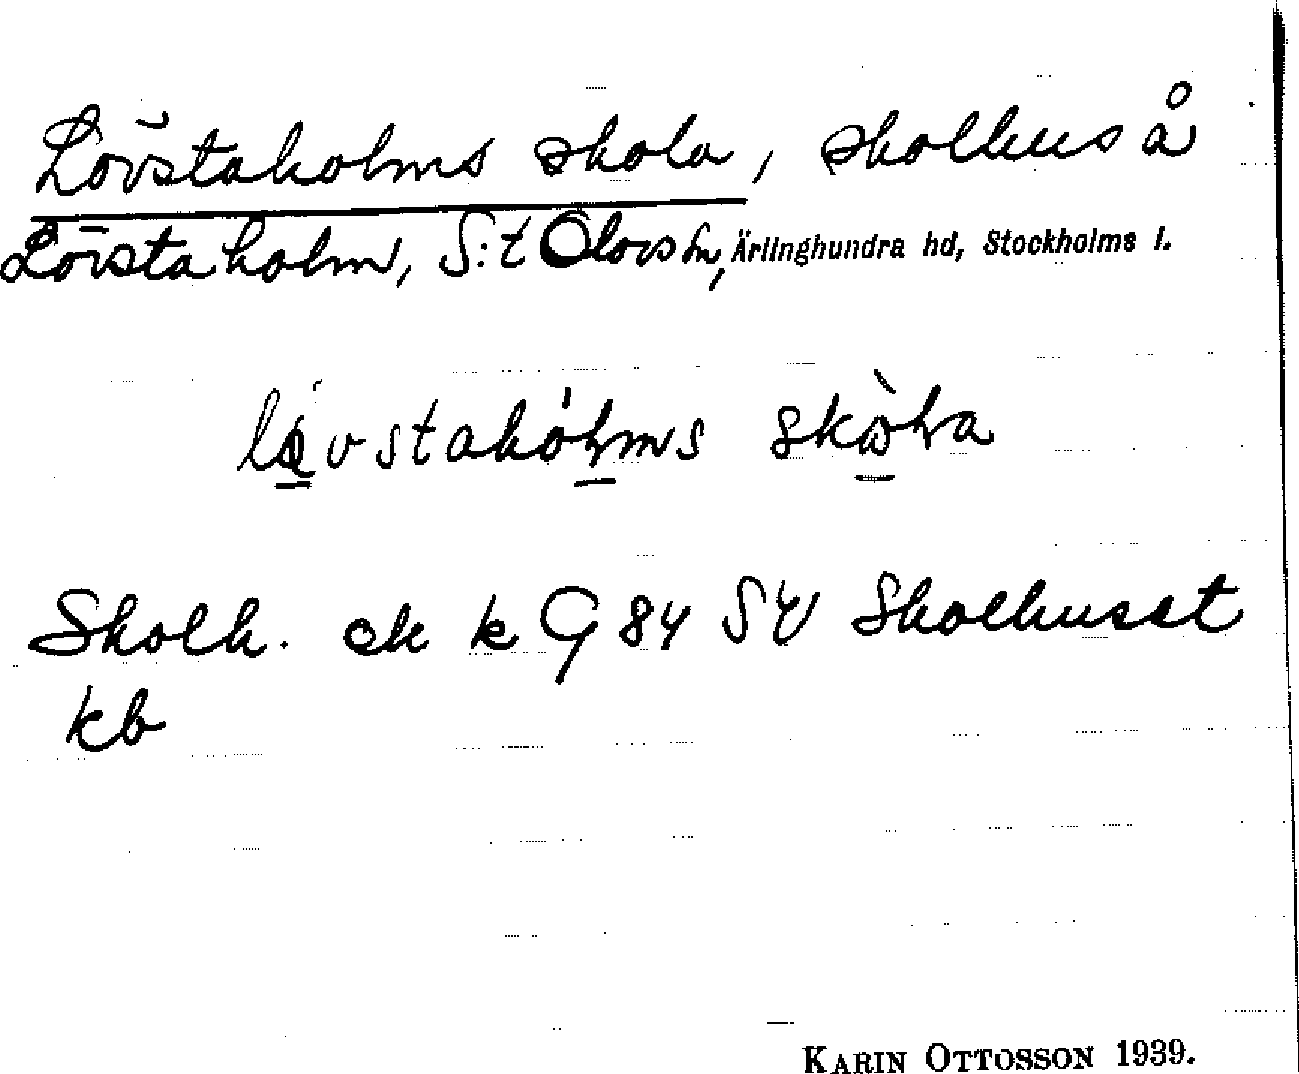 Lövstaholms skola, skolhus å
Lövstaholm, S:t Olovs sn, Ärlinghundra hd, Stockholms l.
skola
Skolh. ek k G 84 SV Skolhuset
kb
KARIN OTTOSSON 1939.